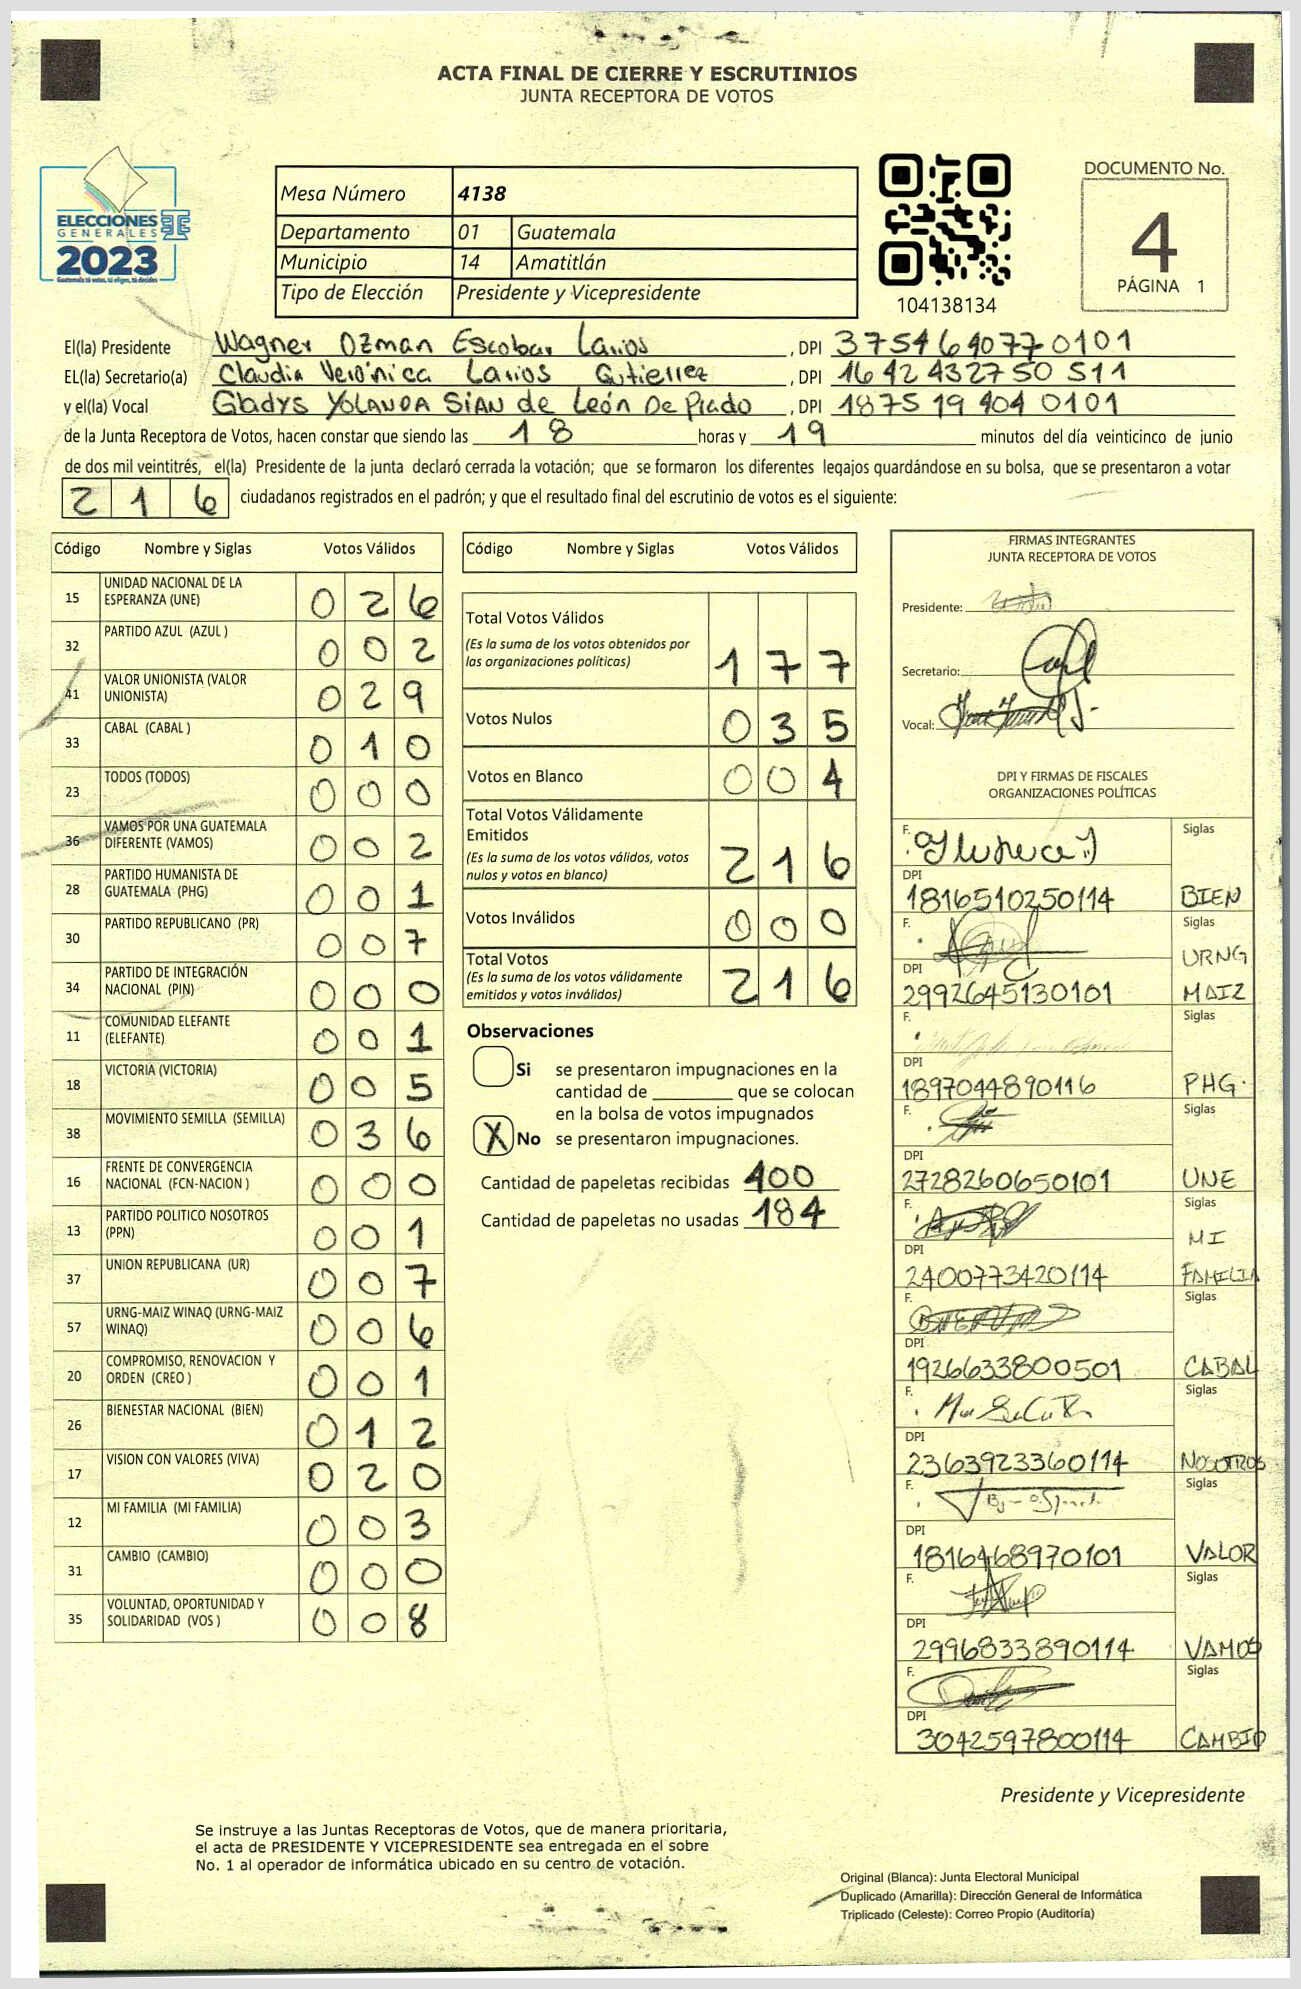 ACTA FINAL DE CIERRE Y ESCRUTINIOS
JUNTA RECEPTORA DE VOTOS
ELECCIONES
GENERALES
2023
Guatemala tú votas, tú eliges, tú decides
Mesa Número 4138
Departamento 01 Guatemala
Municipio 14 Amatitlán
Tipo de Elección Presidente y Vicepresidente
104138134
DOCUMENTO No.
4
PÁGINA 1
El(la) Presidente Wagner Ozman Escobar Larios , DPI 3754640770101
EL(la) Secretario(a) Claudia Verónica Larios Gutierrez , DPI 1642432750511
y el(la) Vocal Gladys YOLANDA SIAN de León De Prado , DPI 1875194040101
de la Junta Receptora de Votos, hacen constar que siendo las 18 horas y 19 minutos del día veinticinco de junio
de dos mil veintitrés, el(la) Presidente de la junta declaró cerrada la votación; que se formaron los diferentes legajos quardándose en su bolsa, que se presentaron a votar
216 ciudadanos registrados en el padrón; y que el resultado final del escrutinio de votos es el siguiente:
Código Nombre y Siglas Votos Válidos
15 UNIDAD NACIONAL DE LA ESPERANZA (UNE) 026
32 PARTIDO AZUL (AZUL ) 002
41 VALOR UNIONISTA (VALOR UNIONISTA) 029
33 CABAL (CABAL ) 010
23 TODOS (TODOS) 000
36 VAMOS POR UNA GUATEMALA DIFERENTE (VAMOS) 002
28 PARTIDO HUMANISTA DE GUATEMALA (PHG) 001
30 PARTIDO REPUBLICANO (PR) 007
34 PARTIDO DE INTEGRACIÓN NACIONAL (PIN) 000
11 COMUNIDAD ELEFANTE (ELEFANTE) 001
18 VICTORIA (VICTORIA) 005
38 MOVIMIENTO SEMILLA (SEMILLA) 036
16 FRENTE DE CONVERGENCIA NACIONAL (FCN-NACION ) 000
13 PARTIDO POLITICO NOSOTROS (PPN) 001
37 UNION REPUBLICANA (UR) 007
57 URNG-MAIZ WINAQ (URNG-MAIZ WINAQ) 006
20 COMPROMISO, RENOVACION Y ORDEN (CREO ) 001
26 BIENESTAR NACIONAL (BIEN) 012
17 VISION CON VALORES (VIVA) 020
12 MI FAMILIA (MI FAMILIA) 003
31 CAMBIO (CAMBIO) 000
35 VOLUNTAD, OPORTUNIDAD Y SOLIDARIDAD (VOS ) 008
Código Nombre y Siglas Votos Válidos
Total Votos Válidos
(Es la suma de los votos obtenidos por
las organizaciones políticas) 177
Votos Nulos 035
Votos en Blanco 004
Total Votos Válidamente
Emitidos
(Es la suma de los votos válidos, votos
nulos y votos en blanco) 216
Votos Inválidos 000
Total Votos
(Es la suma de los votos válidamente
emitidos y votos inválidos) 216
Observaciones
Si se presentaron impugnaciones en la
cantidad de ________ que se colocan
en la bolsa de votos impugnados
X No se presentaron impugnaciones.
Cantidad de papeletas recibidas 400
Cantidad de papeletas no usadas 184
FIRMAS INTEGRANTES
JUNTA RECEPTORA DE VOTOS
Presidente:
Secretario:
Vocal:
DPI Y FIRMAS DE FISCALES
ORGANIZACIONES POLÍTICAS
F. Siglas
DPI
1816510250114 BIEN
F. Siglas
URNG
DPI
2992645130101 MAIZ
F. Siglas
DPI
1897044890116 PHG.
F. Siglas
DPI
2728260650101 UNE
F. Siglas
MI
DPI
2400773420114 FAMILIA
F. Siglas
DPI
1926633800501 CABAL
F. Siglas
DPI
2363923360114 NOSOTROS
F. Siglas
DPI
1816468970101 VALOR
F. Siglas
DPI
2996833890114 VAMOS
F. Siglas
DPI
3042597800114 CAMBIO
Presidente y Vicepresidente
Se instruye a las Juntas Receptoras de Votos, que de manera prioritaria,
el acta de PRESIDENTE Y VICEPRESIDENTE sea entregada en el sobre
No. 1 al operador de informática ubicado en su centro de votación.
Original (Blanca): Junta Electoral Municipal
Duplicado (Amarilla): Dirección General de Informática
Triplicado (Celeste): Correo Propio (Auditoría)